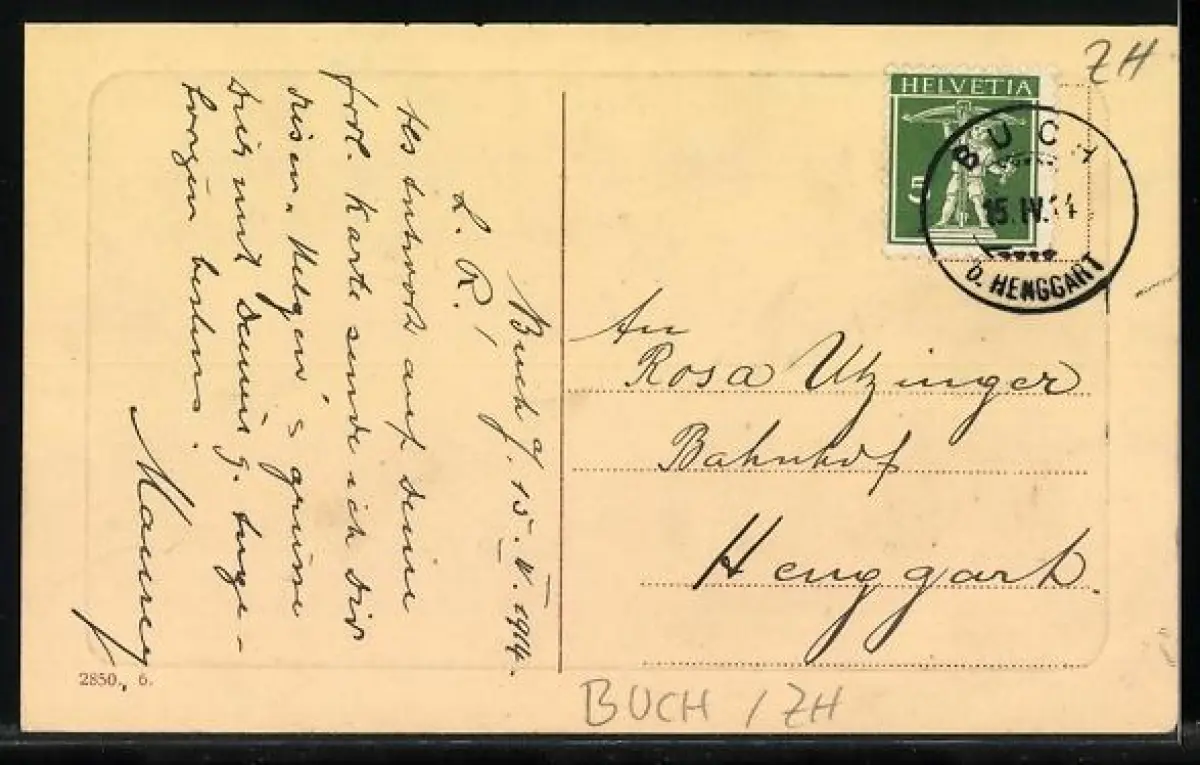 ZH
HELVETIA
5
BUCH
15.IV.14
b. HENGGART
An
Rosa Utzinger
Bahnhof
Henggart.
Buch a/. 15. IV. 1914.
L. R.!
Als Antwort auf deine
frdl. Karte sende ich dir
diesen. Helgen, s grüsse
Dich und deine g. Ange-
hörigen bestens.
2850, 6.
BUCH / ZH